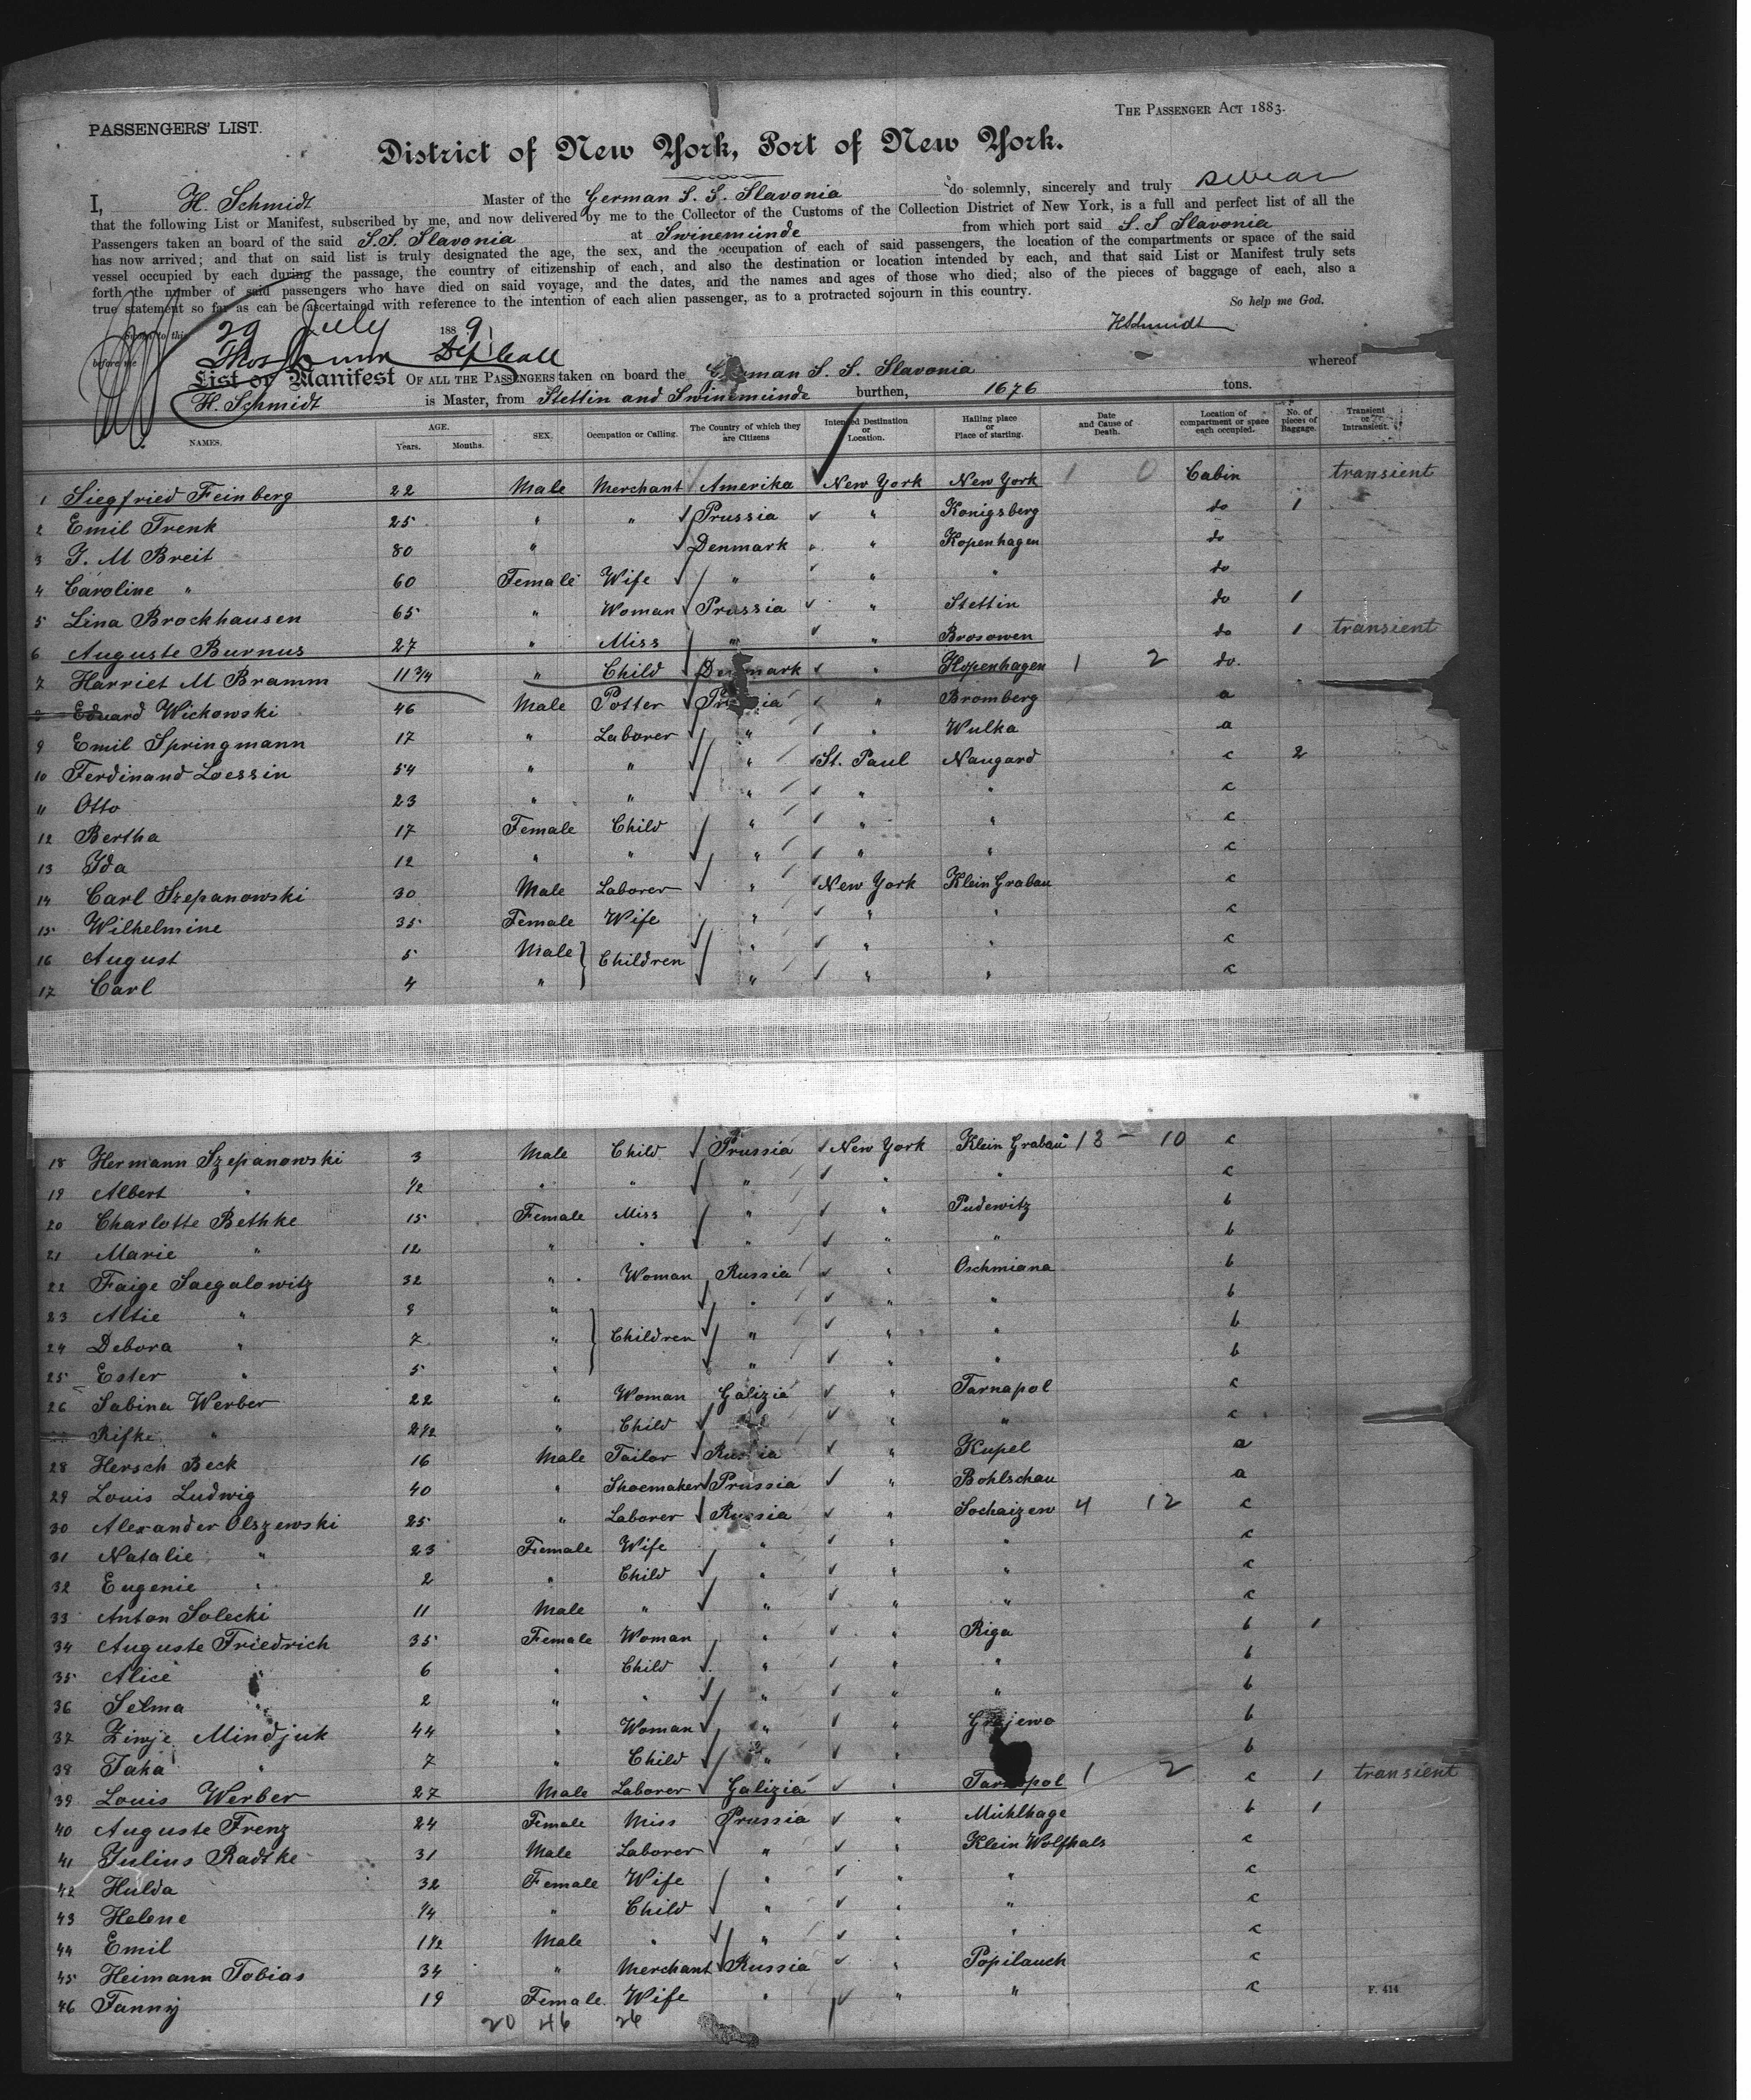 THE PASSENGER ACT 1883.
PASSENGERS' LIST.
District of New York, Port of New York.
I, H. Schmidt Master of the German S. S. Slavonia do solemnly, sincerely and truly swear
that the following List or Manifest, subscribed by me, and now delivered by me to the Collector of the Customs of the Collection District of New York, is a full and perfect list of all the
Passengers taken an board of the said S.S. Slavonia at Swinemünde from which port said S. S Slavonia
has now arrived; and that on said list is truly designated the age, the sex, and the occupation of each of said passengers, the location of the compartments or space of the said
vessel occupied by each during the passage, the country of citizenship of each, and also the destination or location intended by each, and that said List or Manifest truly sets
forth the number of said passengers who have died on said voyage, and the dates, and the names and ages of those who died; also of the pieces of baggage of each, also a
true statement so far as can be ascertained with reference to the intention of each alien passenger, as to a protracted sojourn in this country. So help me God.
Sworn to this 29 July 1889 HSchmidt
before me Thos Dunn Dep Coll
List or Manifest OF ALL THE PASSENGERS taken on board the German S. S. Slavonia whereof
H. Schmidt is Master, from Stettin and Swinemünde burthen, 1676 tons.
NAMES. AGE. Years. Months. SEX. Occupation or Calling. The Country of which they are Citizens Intended Destination or Location. Hailing place or Place of starting. Date and Cause of Death. Location of compartment or space each occupied. No. of pieces of Baggage. Transient or Intransient.
1 Siegfried Feinberg 22 Male Merchant Amerika New York New York 1 0 Cabin transient
2 Emil Trenk 25 " " Prussia " Konigsberg do 1
3 J. M Breit 80 " Denmark " " Kopenhagen do
4 Caroline " 60 Female Wife " " " do
5 Lina Brockhausen 65 " Woman Prussia " Stettin do 1
6 Auguste Burnus 27 " Miss " " Brosowen do 1 transient
7 Harriet M Bramm 11 3/4 " Child Denmark " Kopenhagen 1 2 do.
Eduard Wickowski 46 Male Potter Prussia " Bromberg a
9 Emil Springmann 17 " Laborer " " Wulka a
10 Ferdinand Loessin 54 " " " St. Paul Naugard c 2
11 Otto 23 " " " " " c
12 Bertha 17 Female Child " " " c
13 Ida 12 " " " " " c
14 Carl Szepanowski 30 Male Laborer " New York Klein Grabau c
15 Wilhelmine 35 Female Wife " " " c
16 August 5 Male } Children " " " c
17 Carl 4 " " " " c
18 Hermann Szepanowski 3 Male Child Prussia New York Klein Grabau 13 - 10 c
19 Albert " 1/2 " " " " " c
20 Charlotte Bethke 15 Female Miss " " Pudewitz b
21 Marie " 12 " " " " " b
22 Faige Saegalowitz 32 " Woman Russia " Oschmiana b
23 Altie " 9 " " " " b
24 Debora " 7 " } Children " " " b
25 Ester " 5 " " " " b
26 Sabina Werber 22 " Woman Galizia " Tarnapol c
Rifke " 2 1/2 Child " " " c
28 Hersch Beck 16 Male Tailor Russia " Kupel a
29 Louis Ludwig 40 " Shoemaker Prussia " Bohlschau a
30 Alexander Olszewski 25 " Laborer Russia " Sochaizew 4 12 c
31 Natalie " 23 Female Wife " " " c
32 Eugenie " 2 " Child " " " c
33 Anton Solecki 11 Male " " " " c
34 Auguste Friedrich 35 Female Woman " " Riga b 1
35 Alice " 6 " Child " " " b
36 Selma " 2 " " " " " b
37 Zimje Mindjuk 44 " Woman " " Grajewo b
38 Taha " 7 " Child " " b
39 Louis Werber 27 Male Laborer Galizia " Tarnopol 1 2 c 1 transient
40 Auguste Frenz 24 Female Miss Prussia " Mühlhage b 1
41 Julius Radtke 31 Male Laborer " " Klein Wolfhals c
42 Hulda 32 Female Wife " " " c
43 Helene 1/4 " Child " " " c
44 Emil 1 1/2 Male " " " " c
45 Heimann Tobias 34 " Merchant Russia " Popilauch c
46 Fanny 19 Female Wife " " " c
F. 414
20 46 26